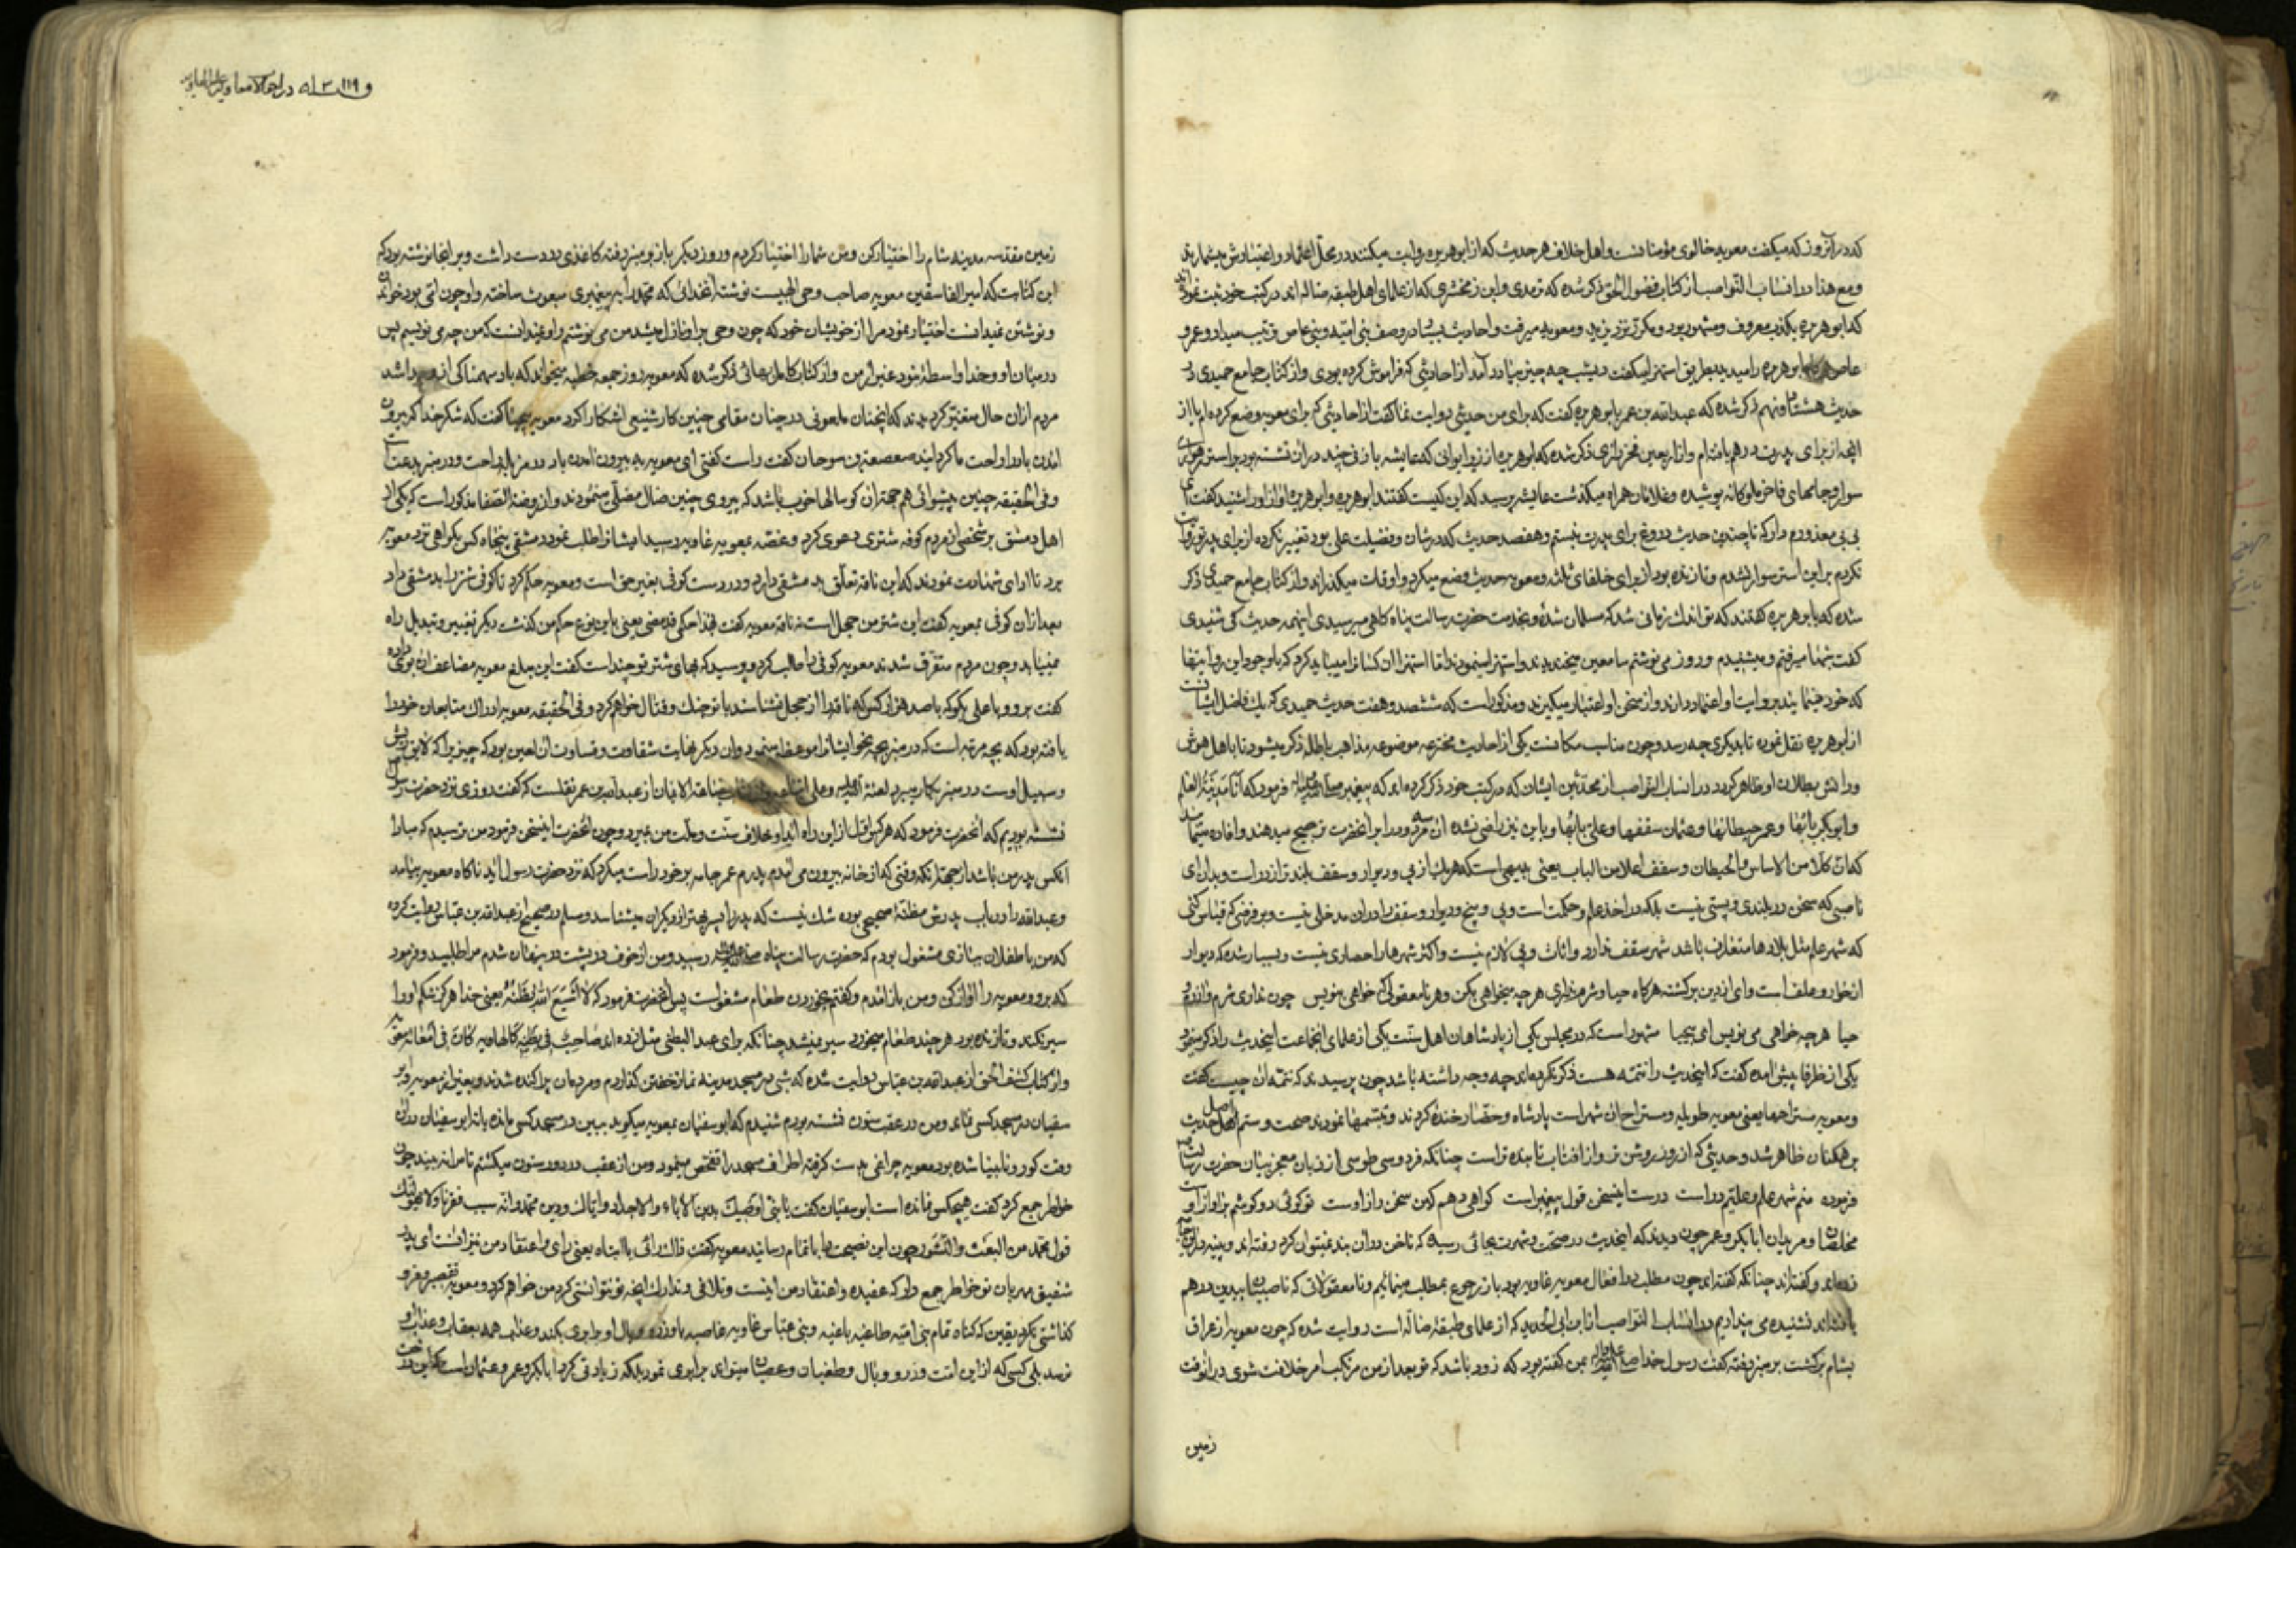 که در آنروز که میگفت معویه خالوی مؤمنانست و اهل خلاف هر حدیث که از ابوهریره روایت میکنند در محل اعتماد و اعتبارش میشمارند
و مع هذا در انساب النواصب از کتاب فضول الحق ذکر شده که ترمدی و ابن زمخشری که از علمای اهل طبقه ضاله اند در کتب خود ثبت نموده اند
که ابوهریره بکذب معروف و مشهور بود و مکرر نزد یزید و معویه میرفت و احادیث بسیار در وصف بنی امیه و بنی عاص ترتیب میداد و عمرو
عاص هرگاه ابوهریره را میدید بطریق استهزا میگفت دیشب چه چیز بیادت آمد از احادیثی که فراموش کرده بودی و از کتاب جامع حمیدی در
حدیث هشتاد و نهم ذکر شده که عبدالله بن عمر بابوهریره گفت که برای من حدیثی روایت نما گفت از احادیثی که برای معویه وضع کرده ام یا از
آنچه از برای پدرت درهم بافته ام و از اربعین فخر رازی ذکر شده که ابوهریره از زیر ایوانی که عایشه با زنی چند در آن نشسته بود بر استر
سوار و جامهای فاخر ملوکانه پوشیده و غلامان همراه میگذشت عایشه پرسید که این کیست گفتند ابوهریره و ابوهریره آواز او را شنید گفت ای
بی بی معذورم دار که تا چندین حدیث دروغ برای پدرت نبستم و هفصد حدیث که در شان و فضیلت علی بود تغییر نکرده از برای پدر تو روایت
نکردم بر این استر سوار نشدم و تا زنده بود از برای خلفای ثلثه و معویه حدیث وضع میکرد و اوقات میگذراند و از کتاب جامع حمیدی ذکر
شده که بابوهریره گفتند که تو اندک زمانی شد که مسلمان شده و بخدمت حضرت رسالت پناه گاهی میرسیدی اینهمه حدیث کی شنیدی
گفت شبها میرفتم و میشنیدم و روز می نوشتم سامعین میخندیدند و استهزا مینمودند اما استهزا آن کسانرا میباید کرد که با وجود این روایتها
که خود مینمایند بروایت او اعتماد دارند و از سخن او اعتبار میگیرند و مذکور است که ششصد و هفت حدیث حمیدی که یک فاضل ایشانست
از ابوهریره نقل نموده تا بدیگری چه رسد و چون مناسب مکانست یکی از احادیث مخترعه موضوعه مذاهب باطله ذکر میشود تا باهل هوش
و دانش بطلان او ظاهر گردد در انساب النواصب از محدثین ایشان که در کتب خود ذکر کرده اند که پیغمبر صلی الله علیه و آله فرمود که انا مدینة العلم
و ابوبکر بابها و عمر حیطانها و عثمان سقفها و علی بابها و باین نیز راضی نشده آن سه مرد را بر آنحضرت ترجیح میدهند
که ان کلا من الاساس والحیطان و سقف اعلا من الباب یعنی بدیهی است که هریک از پی و دیوار و سقف بلندتر از در است و بدان ای
ناصبی که سخن در بلندی و پستی نیست بلکه در اخذ علم و حکمت است و پی و بیخ و دیوار و سقف را در آن مدخلی نیست و بر فرض که قیاس کنی
که شهر علم مثل بلدها متعارف باشد شهر سقف ندارد و اثاث و پی لازم نیست و اکثر شهرها را حصاری نیست و بسیار شده که دیوار
از خار و علف است و ای از دین برگشته هرگاه حیا و شرم نداری هرچه میخواهی بکن و هر نامعقولی که خواهی بنویس چون نداری شرم و آزرم و
حیا هرچه خواهی می نویس ای بیحیا مشهور است که در مجلس یکی از پادشاهان اهل سنت یکی از علمای انجماعت اینحدیث را ذکر مینمود
یکی از ظرفا پیش آمده گفت که اینحدیث را تتمه هست ذکر نکرده اند چه وجه داشته باشد چون پرسیدند که تتمه آن چیست گفت
و معویه مستراحها یعنی معویه طویله و مستراح آن شهر است پادشاه و حضار خنده کردند و تبسمها نمودند صحت و ستم اصل حدیث
بر همگنان ظاهر شد و حدیثی که از روز روشن تر و از افتاب تابنده تر است چنانکه فردوسی طوسی از زبان معجز بیان حضرت رسالت
فرموده منم شهر علم و علیم در است درست اینسخن قول پیغمبر است گواهی دهم کین سخن راز اوست تو گوئی دو گوشم بر آواز اوست
مخلصان و مریدان ابابکر و عمر چون دیدند که اینحدیث در صحت و شهرت بجائی رسیده که ناخن در آن بند نمیتوان کرد رفته اند و پینه
زده اند و گفته اند چنانکه گفته اند چون مطلب در افعال معویه غاویه بود باز رجوع بمطلب مینمائیم و نامعقولاتی که ناصبیان بیدین درهم
بافته اند نشنیده می پنداریم در انساب النواصب از ابن ابی الحدید که از علمای طبقه ضاله است روایت شده که چون معویه از عراق
بشام برگشت بر منبر رفته گفت رسول خدا صلی الله علیه و آله بمن گفته بود که زود باشد که تو بعد از من مرتکب امر خلافت شوی در آنوقت
زمین
و ۱۱۹
زمین مقدسه مدینه شام را اختیار کن و من شما را اختیار کردم و روز دیگر باز بر منبر رفته کاغذی در دست داشت و بر آنجا نوشته بود که
این کتابت که امیر الفاسقین معویه صاحب وحی الهیست نوشته از خدائی که محمد را به پیغمبری مبعوث ساخته و او چون امی بود خواندن
و نوشتن نمیدانست اختیار نمود مرا از خویشان خود که چون وحی بر او نازل میشد من می نوشتم و او نمیدانست که من چه می نویسم پس
در میان او و خدا واسطه نبود غیر از من و از کتاب کامل بهائی ذکر شده که معویه روز جمعه خطبه میخواند که باد سهمناکی از وی جدا شد
مردم از آن حال متغیر گردیدند که آنچنان ملعونی در چنان مقامی چنین کار شنیعی آشکارا کرد معویه بیحیا گفت که شکر خدا که بیرون
آمدن باد را راحت ما گردانید صعصعة بن صوحان گفت راست گفتی ای معویه بلی بیرون آمدن باد در مزبله راحت و در منبر بدعت است
و فی الحقیقه چنین پیشوائی هم جهة آن گوسالها خوب باشد که پیروی چنین ضال مضلی مینمودند و از روضة الصفا مذکور است که یکی از
اهل دمشق بر شخصی از مردم کوفه شتری دعوی کرد و غصه بمعویه غاویه رسید ایشانرا طلب نمود دمشقی پنجاه کس بگواهی نزد معویه
برد تا ادای شهادت نمودند که این ناقه تعلق بدمشقی دارد و در دست کوفی بغیر حق است و معویه حکم کرد تا کوفی شتر را بدمشقی داد
بعد از آن کوفی بمعویه گفت این شتر من جمل است نه ناقه معویه گفت هذا حکم قد مضی یعنی باین نوع حکم من گذشت دیگر تغییر و تبدیل راه
نمییابد و چون مردم متفرق شدند معویه کوفی را طلب کرد و پرسید که بهای شتر تو چند است گفت این مبلغ معویه مضاعف آن بوی داده
گفت برو و با علی بگو که با صد هزار کس که ناقه را از جمل نشناسند با تو جنگ و قتال خواهم کرد و فی الحقیقه معویه ادراک متابعان خود را
یافته بود که بچه مرتبه است که در منبر بچه نحو ایشانرا موعظه مینمود و آن دیگر نهایت شقاوت و قساوت آن لعین بود که چیزیرا که لایق ریش
و سبیل اوست در منبر بکار میبرد لعنة الله علیه و علی
نشسته بودیم که آنحضرت فرمود که هر کس اول از این راه آید او بخلاف سنت و ملت من بمیرد و چون آنحضرت اینسخن فرمود من ترسیدم که مبادا
آنکس پدر من باشد از جهة آنکه وقتی که از خانه بیرون می آمدم پدرم عمر جامه بر خود راست میکرد که نزد حضرت رسول آید ناگاه معویه پیدا شد
و عبدالله را در باب پدرش مظنه صحیحی بوده شک نیست که پدر را پسر بهتر از دیگران میشناسد و مسلم در صحیح از عبدالله بن عباس روایت کرده
که من با طفلان ببازی مشغول بودم که حضرت رسالت پناه صلی الله علیه و آله رسید و من از خوف در پشت در پنهان شدم مرا طلبید و فرمود
که برو و معویه را آواز کن و من باز آمدم و گفتم بخوردن طعام مشغولست پس آنحضرت فرمود که لا اشبع الله بطنه یعنی خدا هرگز شکم او را
سیر نکند و تا زنده بود هرچند طعام میخورد سیر نمیشد چنانکه برای عبد البطنی مثل زده اند صاحب لی بطنه کالهاویه کان فی امعائه معویه
و از کتاب کشف الحق از عبدالله بن عباس روایت شده که شبی در مسجد مدینه نماز خفتن گذاردم و مردمان پراکنده شدند و بغیر از معویه و ابو
سفیان در مسجد کسی نماند و من در عقب ستون نشسته بودم شنیدم که ابوسفیان بمعویه میگوید ببین در مسجد کسی مانده یا نه ابوسفیان در آن
وقت کور و نابینا شده بود معویه چراغی بدست گرفته اطراف مسجد را تفحص مینمود و من از عقب در دور ستون میگشتم تا مرا نه بیند چون
خاطر جمع کرد گفت هیچکس نمانده است ابوسفیان گفت یا بنی اوصیک بدین الاباء والاجداد و ایاک و دین محمد وانه سبب فقرنا ولا یهولنک
قول محمد من البعث والنشور چون این نصیحت ها باتمام رسانید معویه گفت ذاک رائی یا ابتاه یعنی رای و اعتقاد من نیز آنست ای پدر
شفیق مهربان تو خاطر جمع دار که عقیده و اعتقاد من اینست و تلافی و تدارک آنچه تو نتوانستی کرد من خواهم کرد و معویه تقصیر و فرو
گذاشتی نکرد یقین که گناه تمام بنی امیه طاغیه باغیه و بنی عباس غاویه غاصبه با وزر و وبال او برابری بکند و عذاب همه بعقاب و عذاب او
نرسد بلی کسی که از این امت وزر و وبال و طغیان و عصیان میتواند برابری نمود بلکه زیادتی کرد ابابکر و عمر و عثمان است